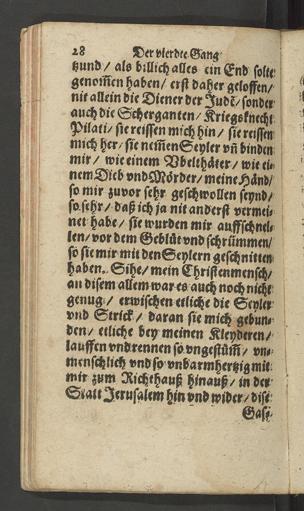 28 Der vierdte Gang
tzund / als billich alles ein End solte
genom̃en haben / erst daher geloffen /
nit allein die Diener der Judẽ / sonder
auch die Scherganten / Kriegsknecht
Pilati / sie reissen mich hin / sie reissen
mich her / sie nem̃en Seyler vñ binden
mir / wie einem Vbelthäter / wie ei-
nem Dieb vnd Mörder / meine Händ /
so mir zuvor sehr geschwollen seynd /
so sehr / daß ich ja nit anderst vermei-
net habe / sie wurden mir auffschnel-
len / vor dem Geblüt vnd schrümmen /
so sie mir mit den Seylern geschnitten
haben. Sihe / mein Christenmensch /
an disem allem war es auch noch nicht
genug / erwischen etliche die Seyler
vnd Strick / daran sie mich gebun-
den / etliche bey meinen Kleyderen /
lauffen vnd rennen so vngestüm̃ / vn-
menschlich vnd so vnbarmhertzig mit
mir zum Richthauß hinauß / in der
Statt Jerusalem hin vnd wider / dise
Gass-